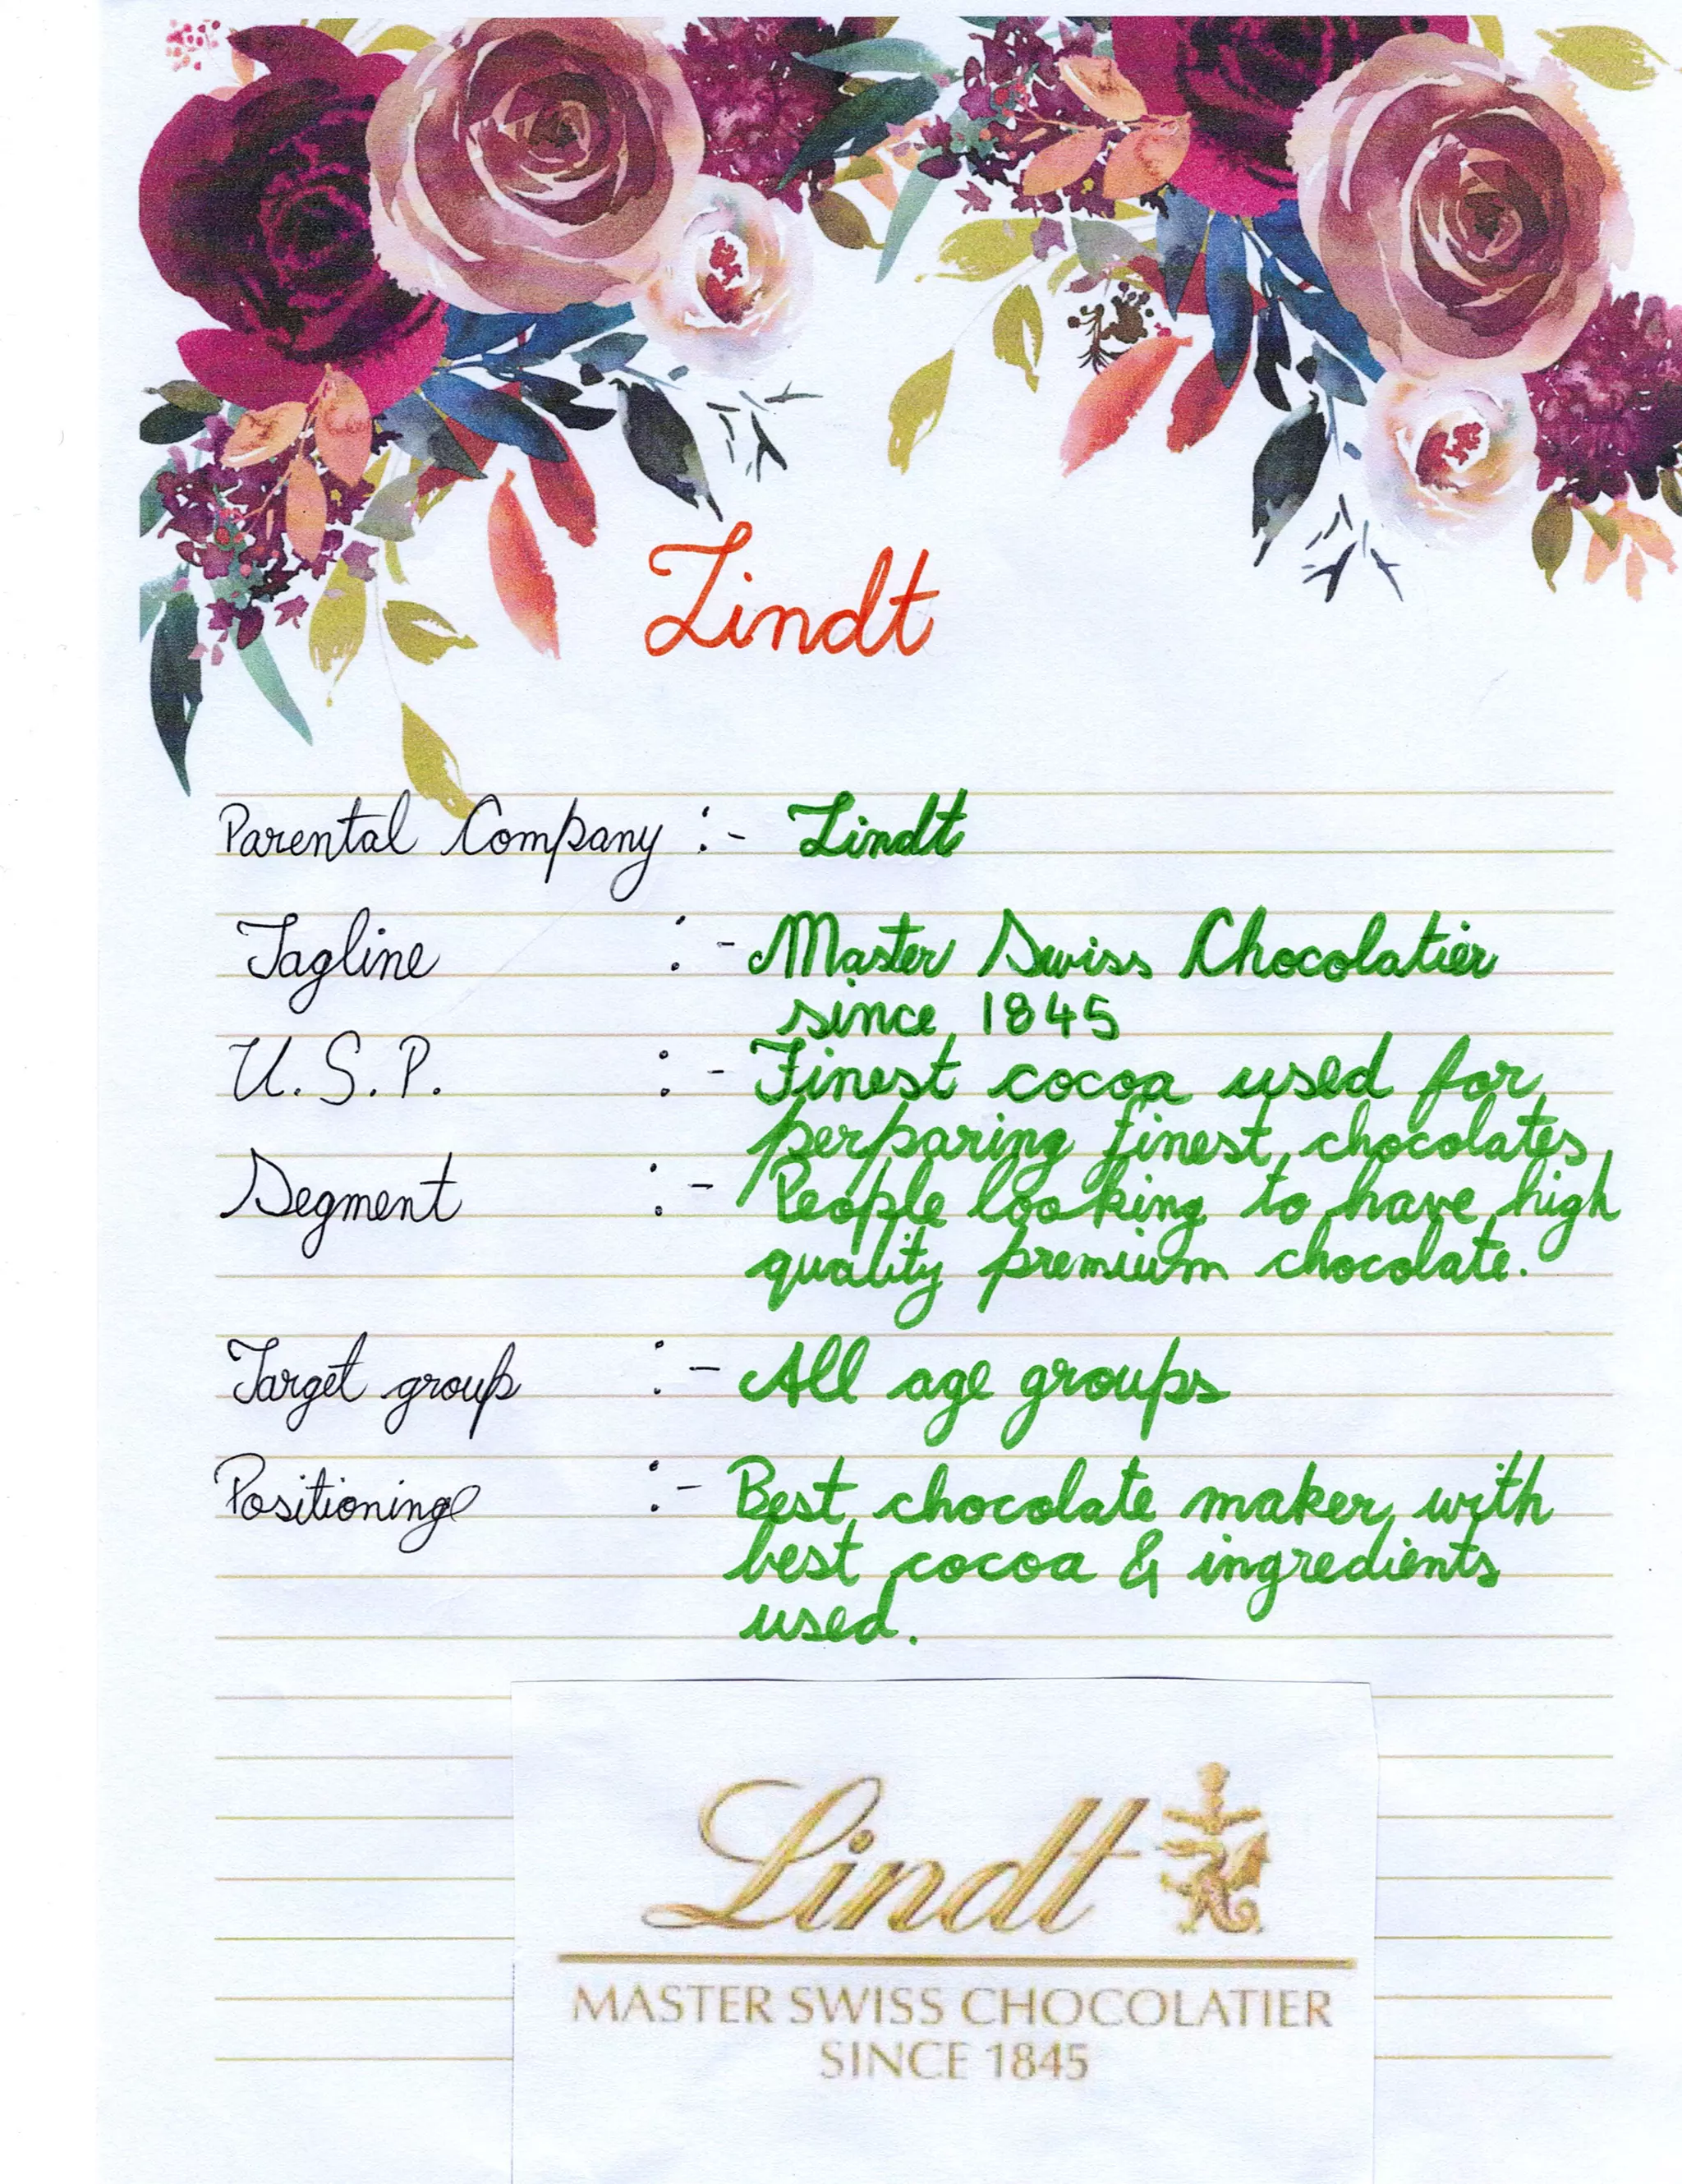 Lindt
Parental Company :- Lindt
Tagline :- Master Swiss Chocolatier
since 1845
U.S.P. :- Finest cocoa used for
perparing finest chocolates
Segment :- People looking to have high
quality premium chocolate.
Target group :- All age groups
Positioning :- Best chocolate maker with
best cocoa & ingredients
used.
Lindt
MASTER SWISS CHOCOLATIER
SINCE 1845